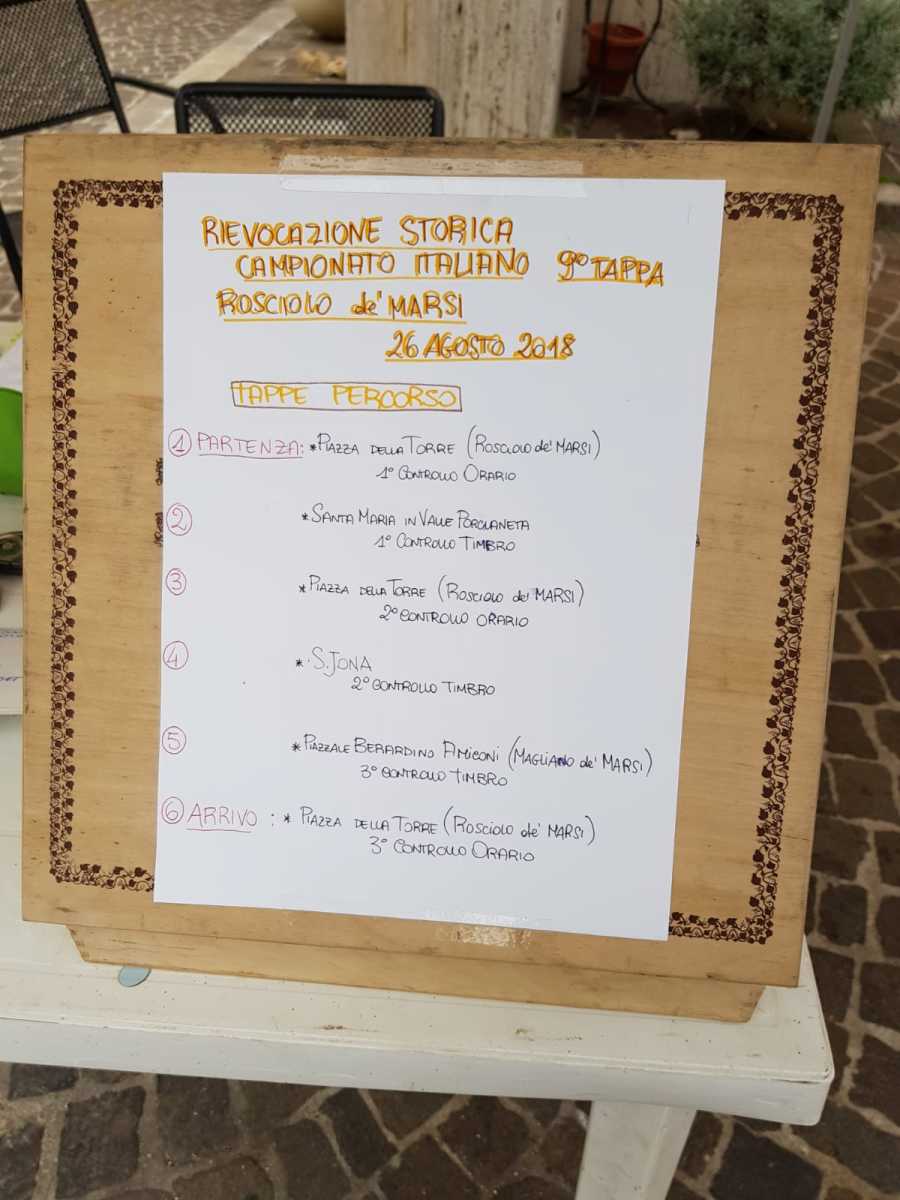 RIEVOCAZIONE STORICA
CAMPIONATO ITALIANO 9° TAPPA
ROSCIOLO de' MARSI
26 AGOSTO 2018
TAPPE PERCORSO
1 PARTENZA: * PIAZZA DELLA TORRE (ROSCIOLO de' MARSI)
1° CONTROLLO ORARIO
2 * SANTA MARIA IN VALLE PORCLANETA
1° CONTROLLO TIMBRO
3 * PIAZZA DELLA TORRE (ROSCIOLO de' MARSI)
2° CONTROLLO ORARIO
4 * S. JONA
2° CONTROLLO TIMBRO
5 * PIAZZALE BERARDINO AMICONI (MAGLIANO de' MARSI)
3° CONTROLLO TIMBRO
6 ARRIVO : * PIAZZA DELLA TORRE (ROSCIOLO de' MARSI)
3° CONTROLLO ORARIO